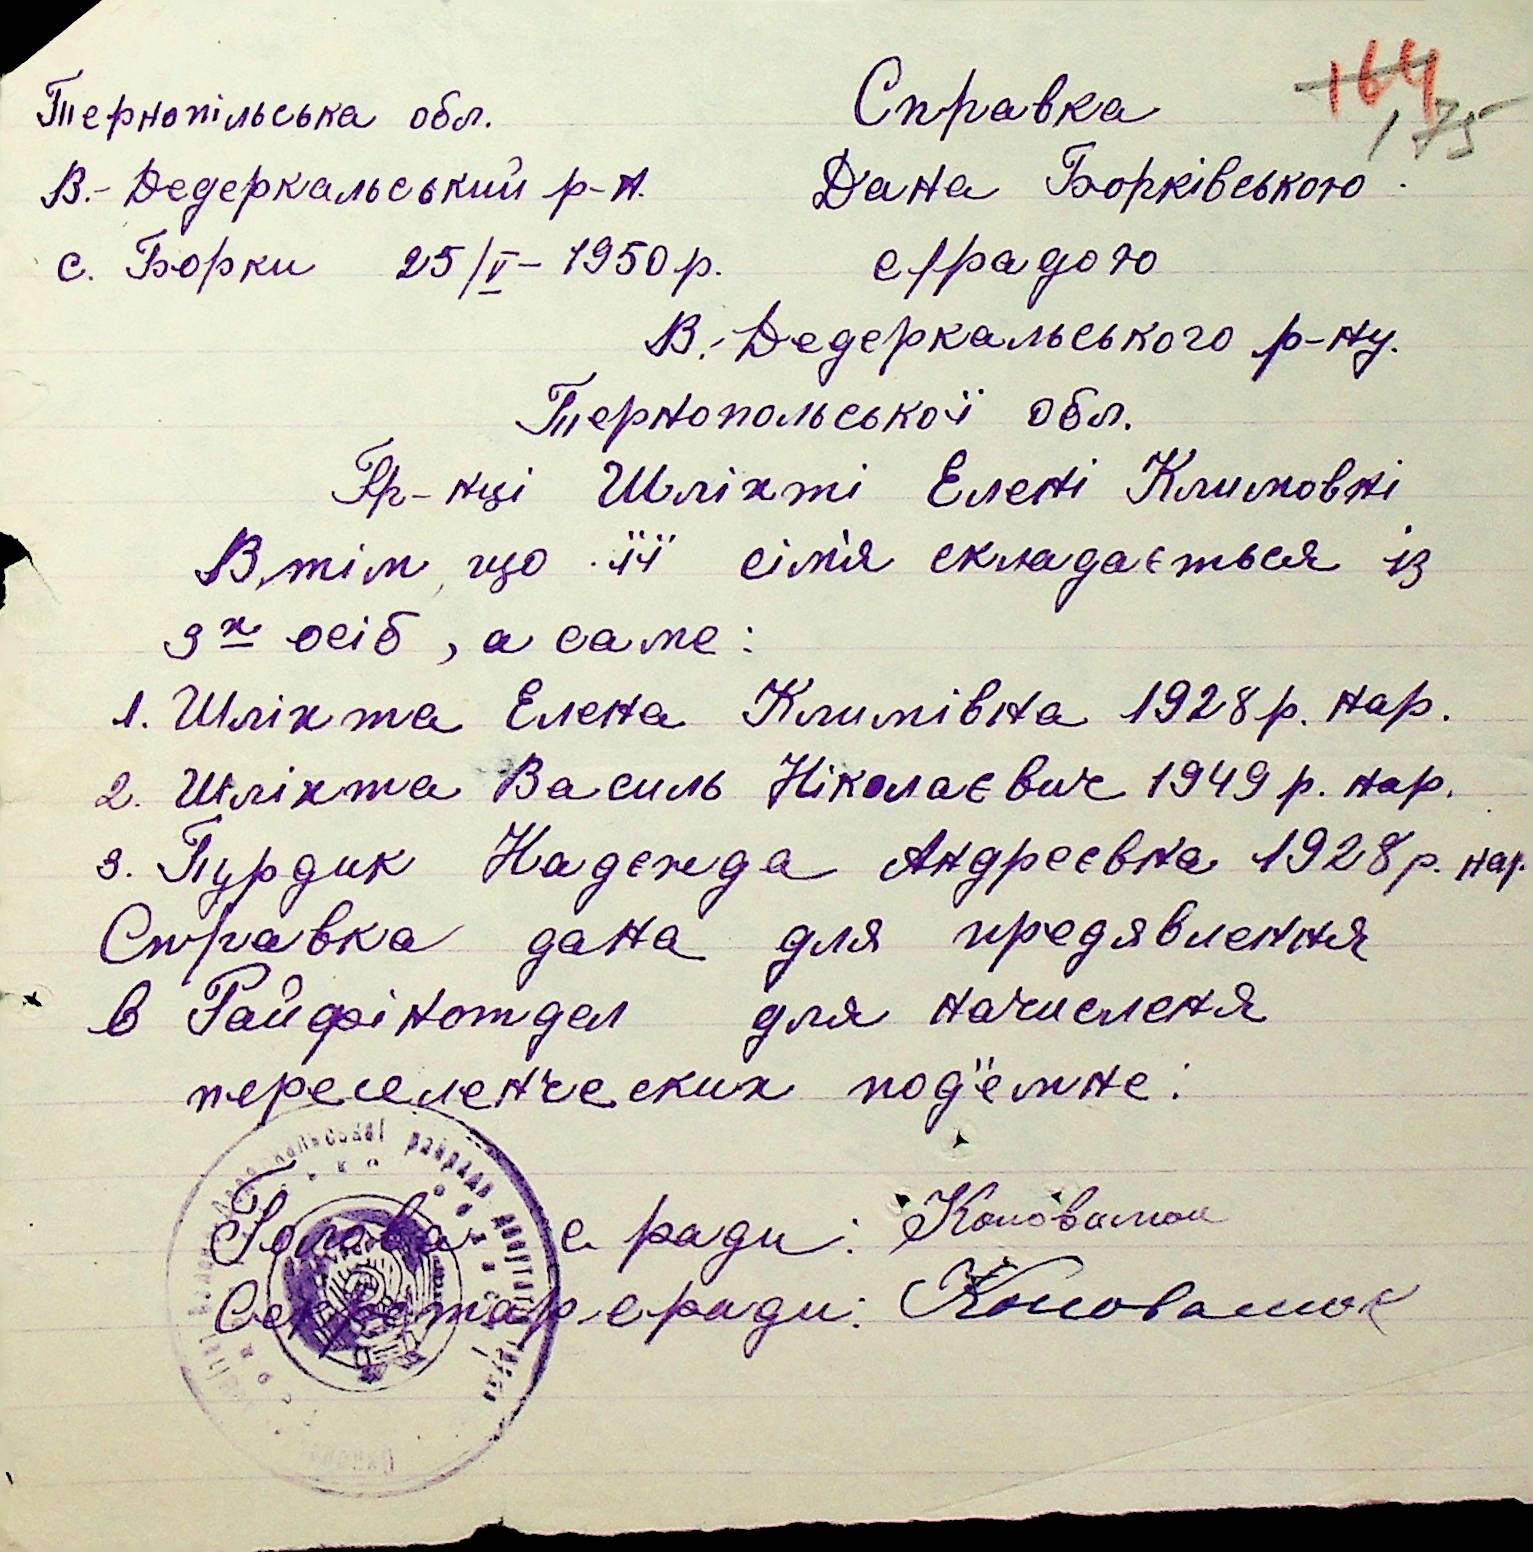 164
175
Тернопільська обл.
В.-Дедеркальський р-н.
с. Борки 25/V-1950р.
Справка
Дана Борківською
с/радою
В.-Дедеркальського р-ну.
Тернопольської обл.
Гр-нці Шліхті Елені Климовні
В тім що її сімя складається із
3х осіб, а саме:
1. Шліхта Елена Климівна 1928р. нар.
2. Шліхта Василь Ніколаєвич 1949р. нар.
3. Пурдик Надєжда Андреєвна 1928р. нар.
Справка дана для предявлення
в Райфінотдел для начисленя
переселенческих под'ёмне:
Голова с. ради: Коновалюк
Секретар с ради: Коновалюк